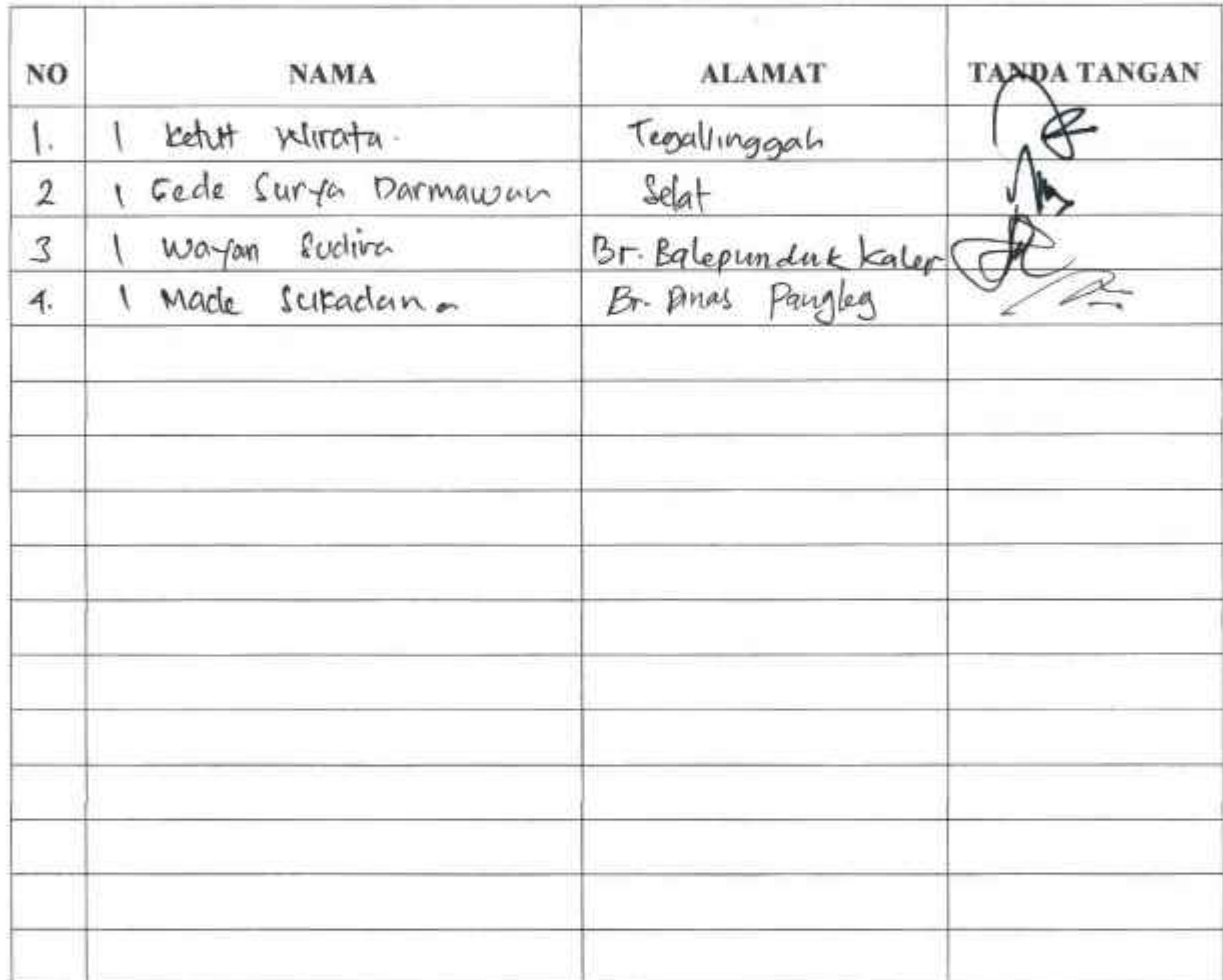 NO NAMA ALAMAT TANDA TANGAN
1. I Ketut Wirata. Tegallinggah
2 I Gede Surya Darmawan Selat
3 I Wayan Sudira Br. Balepunduk Kaler
4. I Made Sukadana Br. Dinas Pangleg